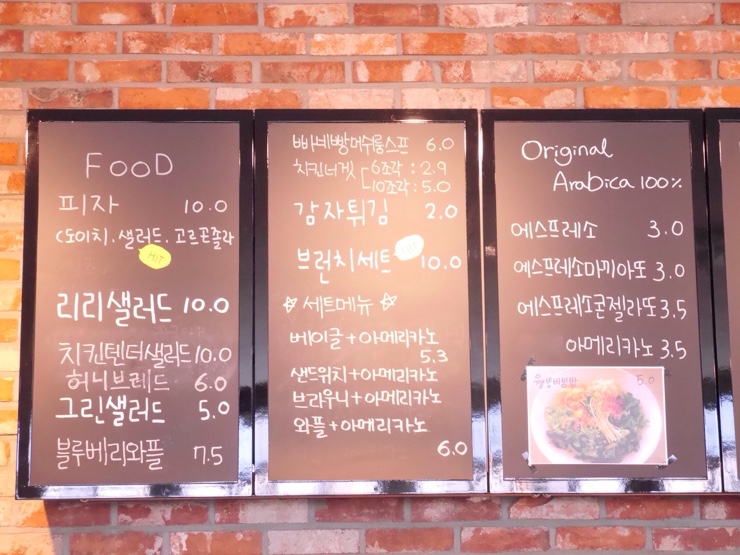 FOOD
피자 10.0
(도이치.샐러드.고르곤졸라
HIT
리리샐러드 10.0
치킨텐더샐러드 10.0
허니브레드 6.0
그린샐러드 5.0
블루베리와플 7.5
빠네빵머쉬룸스프 6.0
치킨너겟 6조각 : 2.9
10조각 : 5.0
감자튀김 2.0
브런치세트 10.0
☆ 세트메뉴 ☆
베이글+아메리카노
5.3
샌드위치+아메리카노
브라우니+아메리카노
와플+아메리카노
6.0
Original
Arabica 100%
에스프레소 3.0
에스프레소마끼아또 3.0
에스프레소콘젤라또 3.5
아메리카노 3.5
5.0